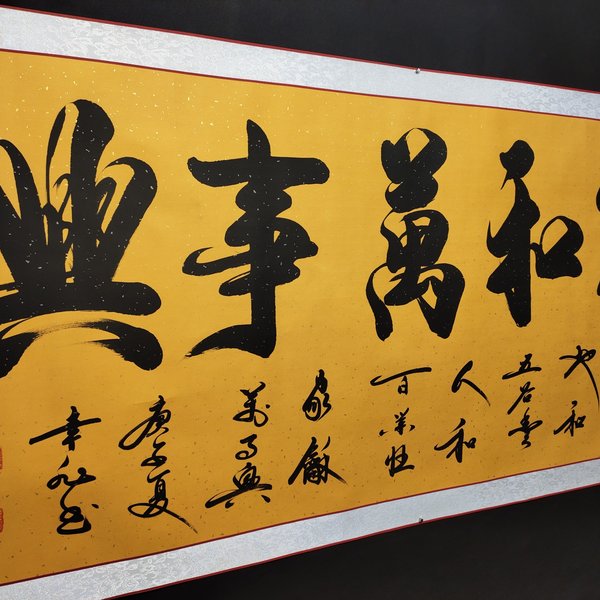 和萬事興
地和
五谷豐
人和
百業旺
家龢
萬事興
庚子夏
書